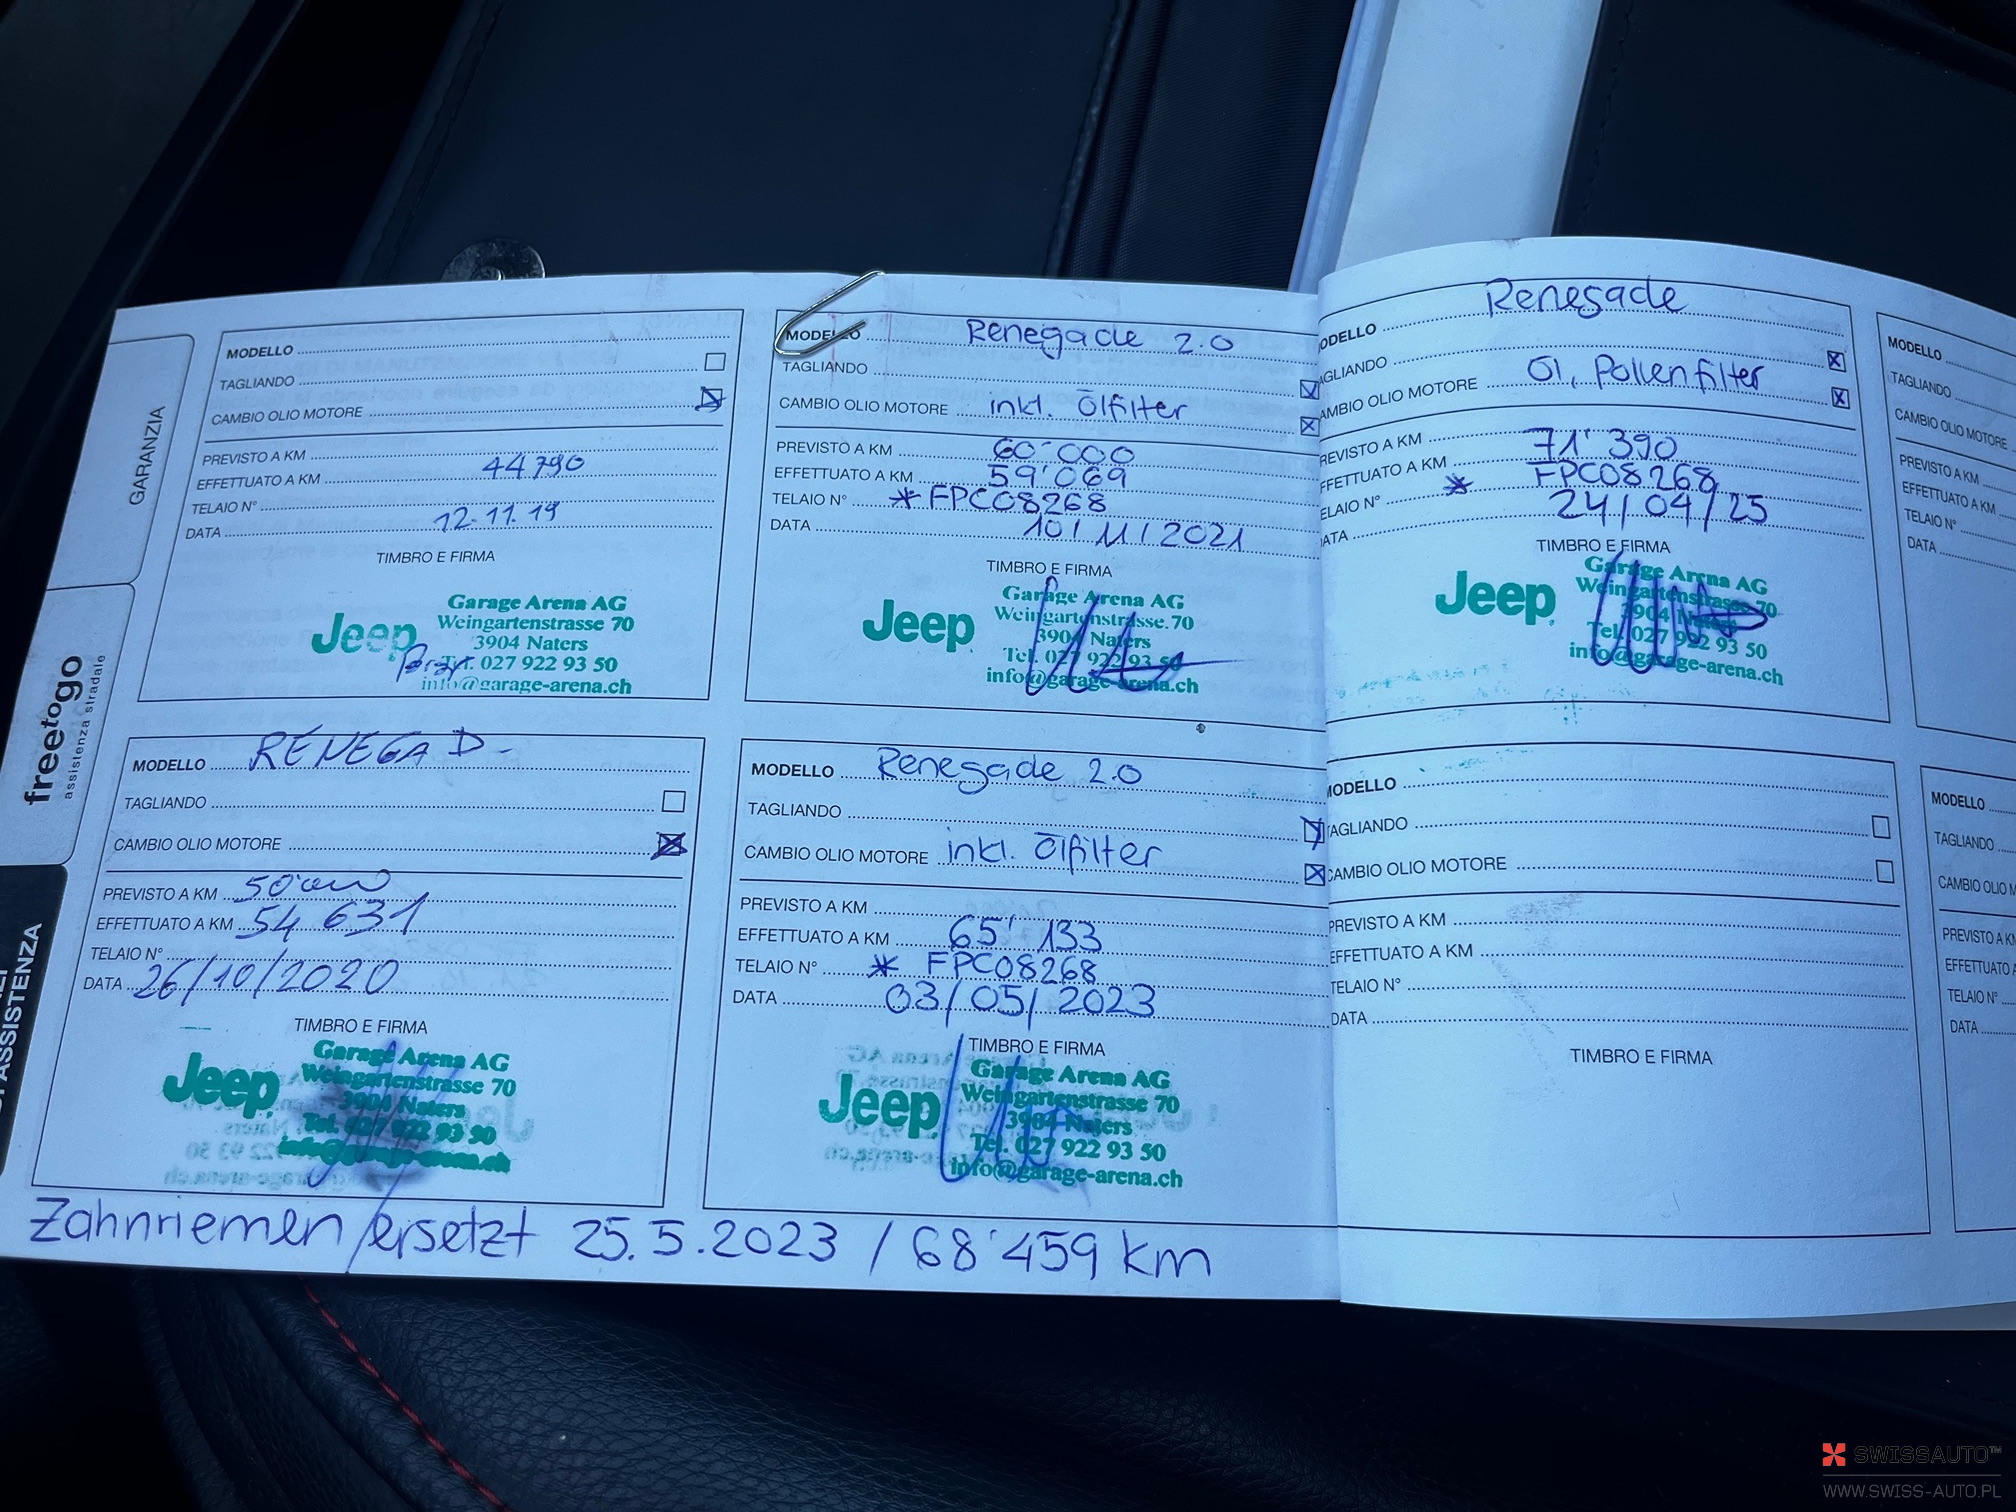 GARANZIA
freetogo
assistenza stradale
ASSISTENZA
MODELLO
TAGLIANDO
CAMBIO OLIO MOTORE
PREVISTO A KM
EFFETTUATO A KM 44790
TELAIO N°
DATA 12.11.19
TIMBRO E FIRMA
Jeep
Garage Arena AG
Weingartenstrasse 70
3904 Naters
Tel. 027 922 93 50
info@garage-arena.ch
MODELLO RENEGAD-
TAGLIANDO
CAMBIO OLIO MOTORE
PREVISTO A KM 50'000
EFFETTUATO A KM 54 631
TELAIO N°
DATA 26/10/2020
TIMBRO E FIRMA
Jeep
Garage Arena AG
Weingartenstrasse 70
3904 Naters
Tel. 027 922 93 50
info@garage-arena.ch
MODELLO Renegade 2.0
TAGLIANDO
CAMBIO OLIO MOTORE inkl. Ölfilter
PREVISTO A KM 60'000
EFFETTUATO A KM 59'069
TELAIO N° * FPC08268
DATA 10/11/2021
TIMBRO E FIRMA
Jeep
Garage Arena AG
Weingartenstrasse 70
3904 Naters
Tel. 027 922 93 50
info@garage-arena.ch
MODELLO Renegade 2.0
TAGLIANDO
CAMBIO OLIO MOTORE inkl. Ölfilter
PREVISTO A KM
EFFETTUATO A KM 65'133
TELAIO N° * FPC08268
DATA 03/05/2023
TIMBRO E FIRMA
Jeep
Garage Arena AG
Weingartenstrasse 70
3904 Naters
Tel. 027 922 93 50
info@garage-arena.ch
Zahnriemen ersetzt 25.5.2023 / 68'459 km
ODELLO Renegade
AGLIANDO
AMBIO OLIO MOTORE Öl, Pollenfilter
REVISTO A KM
FFETTUATO A KM 71'390
ELAIO N° * FPC08268
ATA 24/04/25
TIMBRO E FIRMA
Jeep
Garage Arena AG
Weingartenstrasse 70
3904 Naters
Tel. 027 922 93 50
info@garage-arena.ch
MODELLO
TAGLIANDO
CAMBIO OLIO MOTORE
PREVISTO A KM
EFFETTUATO A KM
TELAIO N°
DATA
TIMBRO E FIRMA
MODELLO
TAGLIANDO
CAMBIO OLIO MOTORE
PREVISTO A KM
EFFETTUATO A KM
TELAIO N°
DATA
MODELLO
TAGLIANDO
CAMBIO OLIO M
PREVISTO A K
EFFETTUATO A
TELAIO N°
DATA
SWISSAUTO™
WWW.SWISS-AUTO.PL